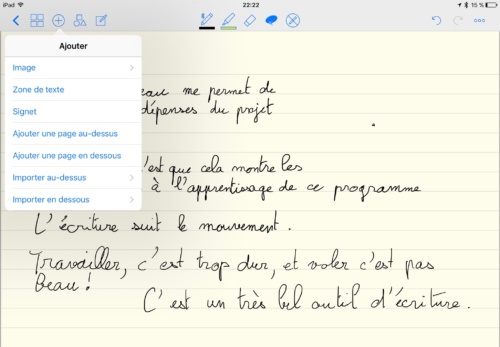 iPad
22:22
15 %
Ajouter
Image
Zone de texte
Signet
Ajouter une page au-dessus
Ajouter une page en dessous
Importer au-dessus
Importer en dessous
eau me permet de
dépenses du projet
'est que cela montre les
à l'apprentissage de ce programme
L'écriture suit le mouvement.
Travailler, c'est trop dur, et voler c'est pas
beau !
C'est un très bel outil d'écriture.